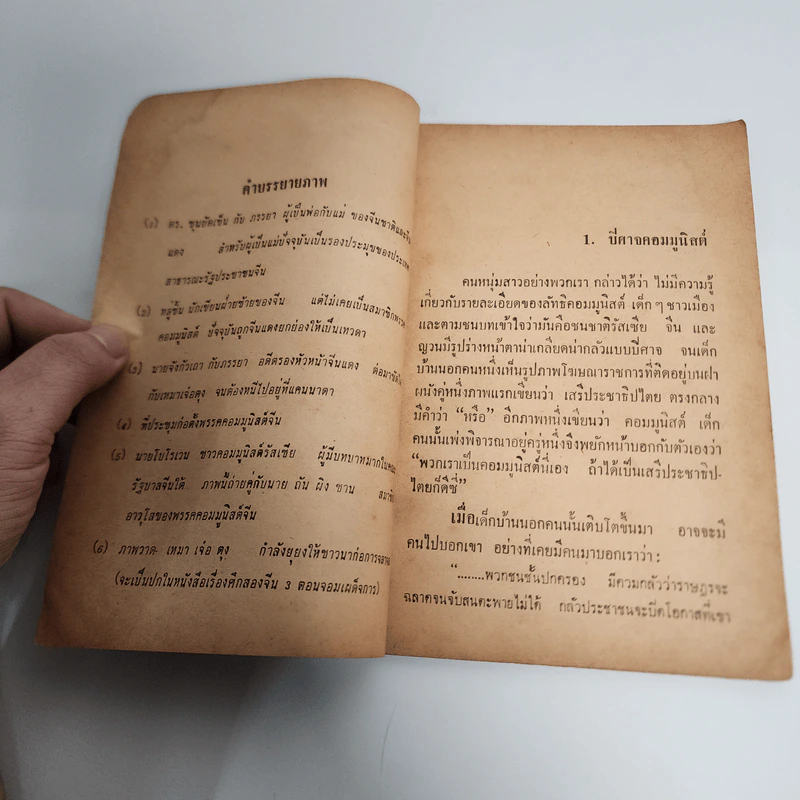 คำบรรยายภาพ
(๑) ดร. ซุนยัดเซ็น กับ ภรรยา ผู้เป็นพ่อกับแม่ ของจีนชาติและจีน
แดง สำหรับผู้เป็นแม่ปัจจุบันเป็นรองประมุขของประเทศ
สาธารณะรัฐประชาชนจีน
(๒) หลู่ซิ่น นักเขียนฝ่ายซ้ายของจีน แต่ไม่เคยเป็นสมาชิกพรรค
คอมมูนิสต์ ปัจจุบันถูกจีนแดงยกย่องให้เป็นเทวดา
(๓) นายจังกัวเถา กับภรรยา อดีตรองหัวหน้าจีนแดง ต่อมาขัดใจ
กับเหมาเจ๋อตุง จนต้องหนีไปอยู่ที่แคนนาดา
(๔) ที่ประชุมก่อตั้งพรรคคอมมูนิสต์จีน
(๕) นายโบโรเวน ชาวคอมมูนิสต์รัสเซีย ผู้มีบทบาทมากใน
รัฐบาลจีนใต้ ภาพนี้ถ่ายคู่กับนาย ถัน ผิง ซาน
อาวุโสของพรรคคอมมูนิสต์จีน
(๖) ภาพวาด เหมา เจ๋อ ตุง กำลังยุยงให้ชาวนาก่อการจลาจล
(จะเป็นปกในหนังสือเรื่องศึกสองจีน 3 ตอนจอมเผด็จการ)
1. ปีศาจคอมมูนิสต์
คนหนุ่มสาวอย่างพวกเรา กล่าวได้ว่า ไม่มีความรู้
เกี่ยวกับรายละเอียดของลัทธิคอมมูนิสต์ เด็กๆชาวเมือง
และตามชนบทเข้าใจว่ามันคือชนชาติรัสเซีย จีน และ
ญวนมีรูปร่างหน้าตาน่าเกลียดน่ากลัวแบบปีศาจ จนเด็ก
บ้านนอกคนหนึ่งเห็นรูปภาพโฆษณาราชการที่ติดอยู่บนฝา
ผนังคู่หนึ่งภาพแรกเขียนว่า เสรีประชาธิปไตย ตรงกลาง
มีคำว่า “หรือ” อีกภาพหนึ่งเขียนว่า คอมมูนิสต์ เด็ก
คนนั้นเพ่งพิจารณาอยู่ครู่หนึ่งจึงพยักหน้าบอกกับตัวเองว่า
“พวกเราเป็นคอมมูนิสต์นี่เอง ถ้าได้เป็นเสรีประชาธิป-
ไตยก็ดีซี่”
เมื่อเด็กบ้านนอกคนนั้นเติบโตขึ้นมา อาจจะมี
คนไปบอกเขา อย่างที่เคยมีคนมาบอกเราว่า :
“........พวกชนชั้นปกครอง มีควมกลัวว่าราษฎรจะ
ฉลาดจนจับสนตะพายไม่ได้ กลัวประชาชนจะมีโอกาสที่เขา